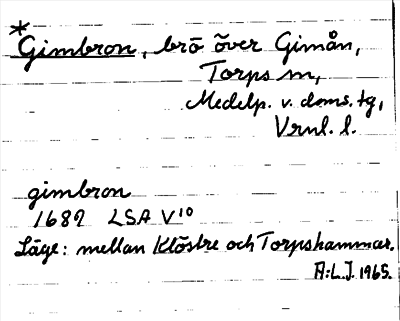 *Gimbron, bro över Gimån,
Torps sn,
Medelp. v. doms. tg,
Vrnl. l.
gimbron
1687 LSA V10
Läge: mellan Klöstre och Torpshammar.
A:L.J. 1965.